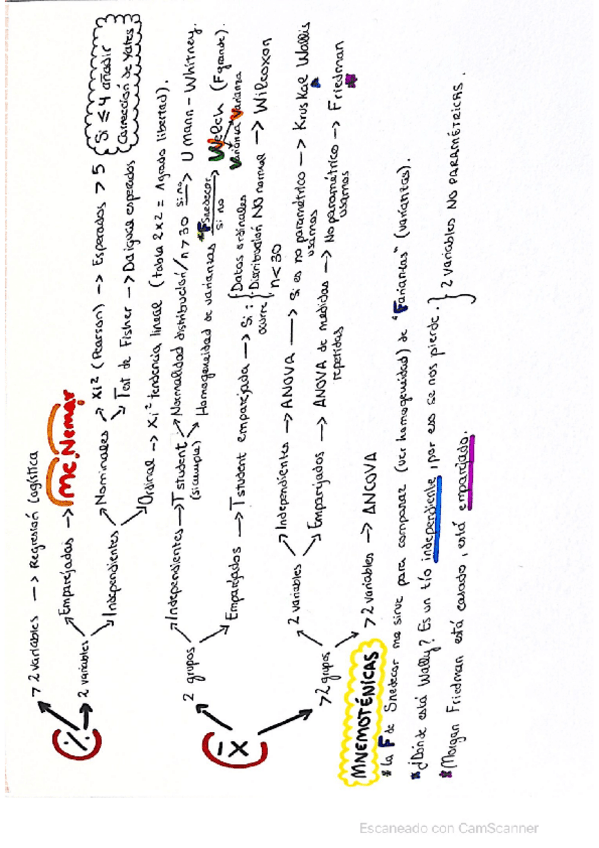 > 2 variables → Regresión Logística
(%)
2 variables
Emparejadas → Mc.Nemar
Independientes
Nominales → Xi² (Pearson) → Esperados > 5
Si ≤ 4 añadir
Corrección de Yates
Test de Fisher → Da igual esperados
Ordinal → Xi² tendencia lineal (tabla 2x2 = 1 grado libertad).
(x̄)
2 grupos
Independientes → T student (si cumple)
Normalidad distribución/n > 30 si no → U Mann-Whitney.
Homogeneidad de varianzas "F Snedecor" si no → Welch (F grande).
Varianza Varianza
Emparejados → T student emparejada → Si ocurre:
Datos ordinales
Distribución NO normal → Wilcoxon
n < 30
> 2 grupos
2 variables
Independientes → ANOVA → Si es no paramétrico → Kruskal Wallis
usamos
Emparejados → ANOVA de medidas → No paramétrico → Friedman
repetidas usamos
> 2 variables → ANCOVA
MNEMOTÉNICAS
* La F de Snedecor me sirve para comparar (ver homogeneidad) de "Farianzas" (varianzas).
* ¿Dónde está Wally? Es un tío independiente, por eso se nos pierde.
* Morgan Friedman está casado, está emparejado.
} 2 VARIABLES NO PARAMÉTRICAS.
Escaneado con CamScanner